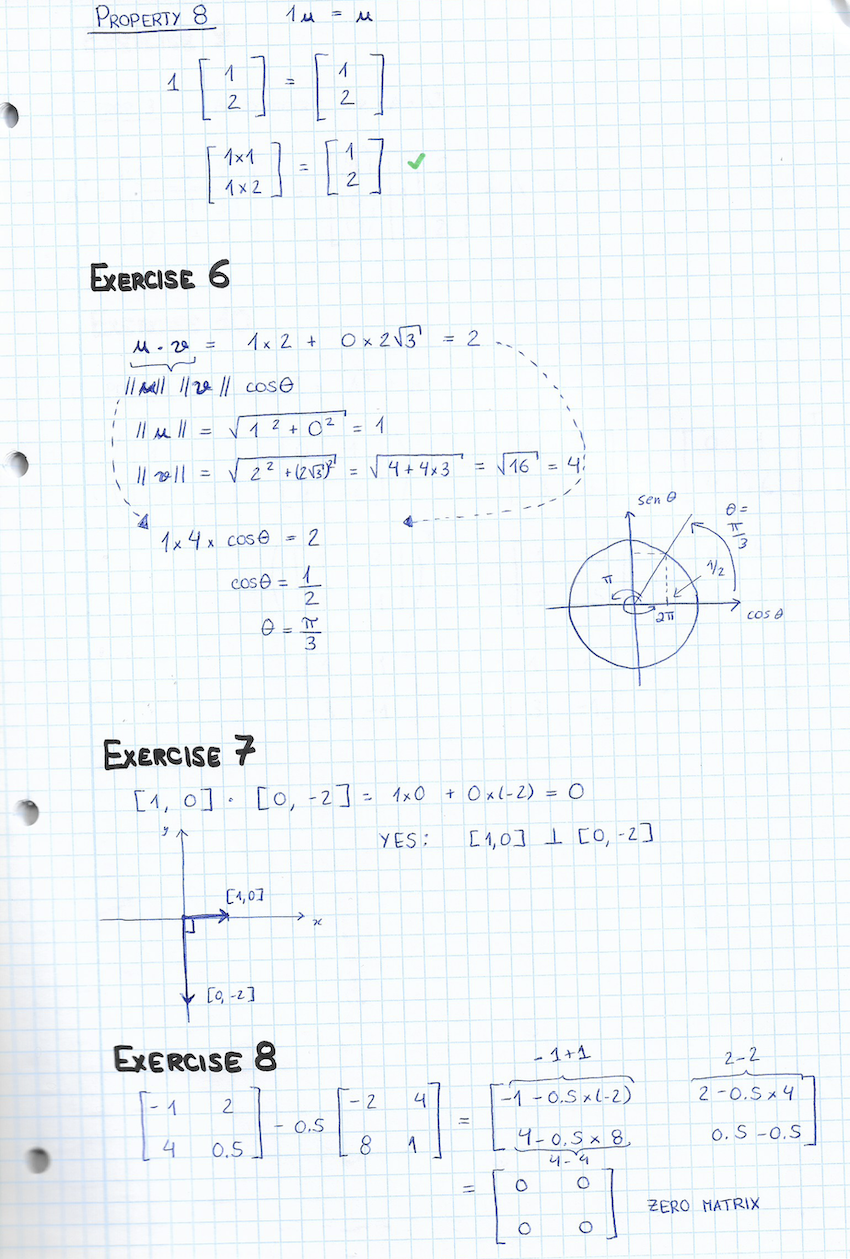 PROPERTY 8    1u = u
1 [1 2] = [1 2]
[1×1 1×2] = [1 2] ✓
EXERCISE 6
u · v = 1×2 + 0×2√3 = 2
||u|| ||v|| cosθ
||u|| = √(1² + 0²) = 1
||v|| = √(2² + (2√3)²) = √(4+4×3) = √16 = 4
1×4× cosθ = 2
cosθ = 1/2
θ = π/3
sen θ
θ = π/3
1/2
π
2π
cos θ
EXERCISE 7
[1, 0] · [0, -2] = 1×0 + 0×(-2) = 0
YES: [1,0] ⊥ [0,-2]
y
[1,0]
x
[0,-2]
EXERCISE 8
-1+1    2-2
[-1 2] - 0.5 [-2 4] = [-1 -0.5×(-2)    2-0.5×4]
[4 0.5] [8 1] [4-0.5×8    0.5-0.5]
4-4
= [0 0]
[0 0] ZERO MATRIX